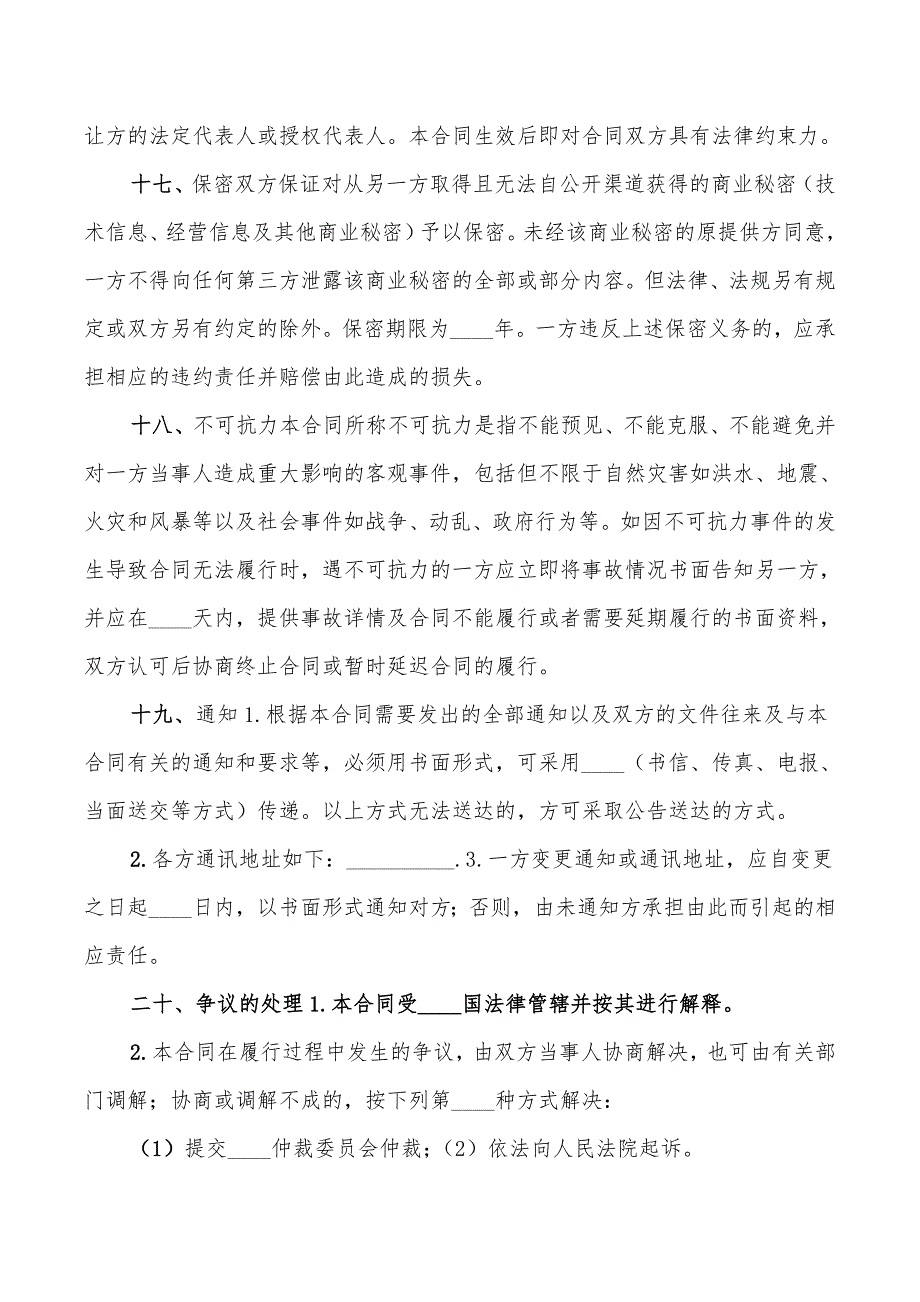 让方的法定代表人或授权代表人。本合同生效后即对合同双方具有法律约束力。
十七、保密双方保证对从另一方取得且无法自公开渠道获得的商业秘密（技
术信息、经营信息及其他商业秘密）予以保密。未经该商业秘密的原提供方同意，
一方不得向任何第三方泄露该商业秘密的全部或部分内容。但法律、法规另有规
定或双方另有约定的除外。保密期限为____年。一方违反上述保密义务的，应承
担相应的违约责任并赔偿由此造成的损失。
十八、不可抗力本合同所称不可抗力是指不能预见、不能克服、不能避免并
对一方当事人造成重大影响的客观事件，包括但不限于自然灾害如洪水、地震、
火灾和风暴等以及社会事件如战争、动乱、政府行为等。如因不可抗力事件的发
生导致合同无法履行时，遇不可抗力的一方应立即将事故情况书面告知另一方，
并应在____天内，提供事故详情及合同不能履行或者需要延期履行的书面资料，
双方认可后协商终止合同或暂时延迟合同的履行。
十九、通知1.根据本合同需要发出的全部通知以及双方的文件往来及与本
合同有关的通知和要求等，必须用书面形式，可采用____（书信、传真、电报、
当面送交等方式）传递。以上方式无法送达的，方可采取公告送达的方式。
2.各方通讯地址如下：__________.3.一方变更通知或通讯地址，应自变更
之日起____日内，以书面形式通知对方；否则，由未通知方承担由此而引起的相
应责任。
二十、争议的处理1.本合同受____国法律管辖并按其进行解释。
2.本合同在履行过程中发生的争议，由双方当事人协商解决，也可由有关部
门调解；协商或调解不成的，按下列第____种方式解决：
（1）提交____仲裁委员会仲裁；（2）依法向人民法院起诉。